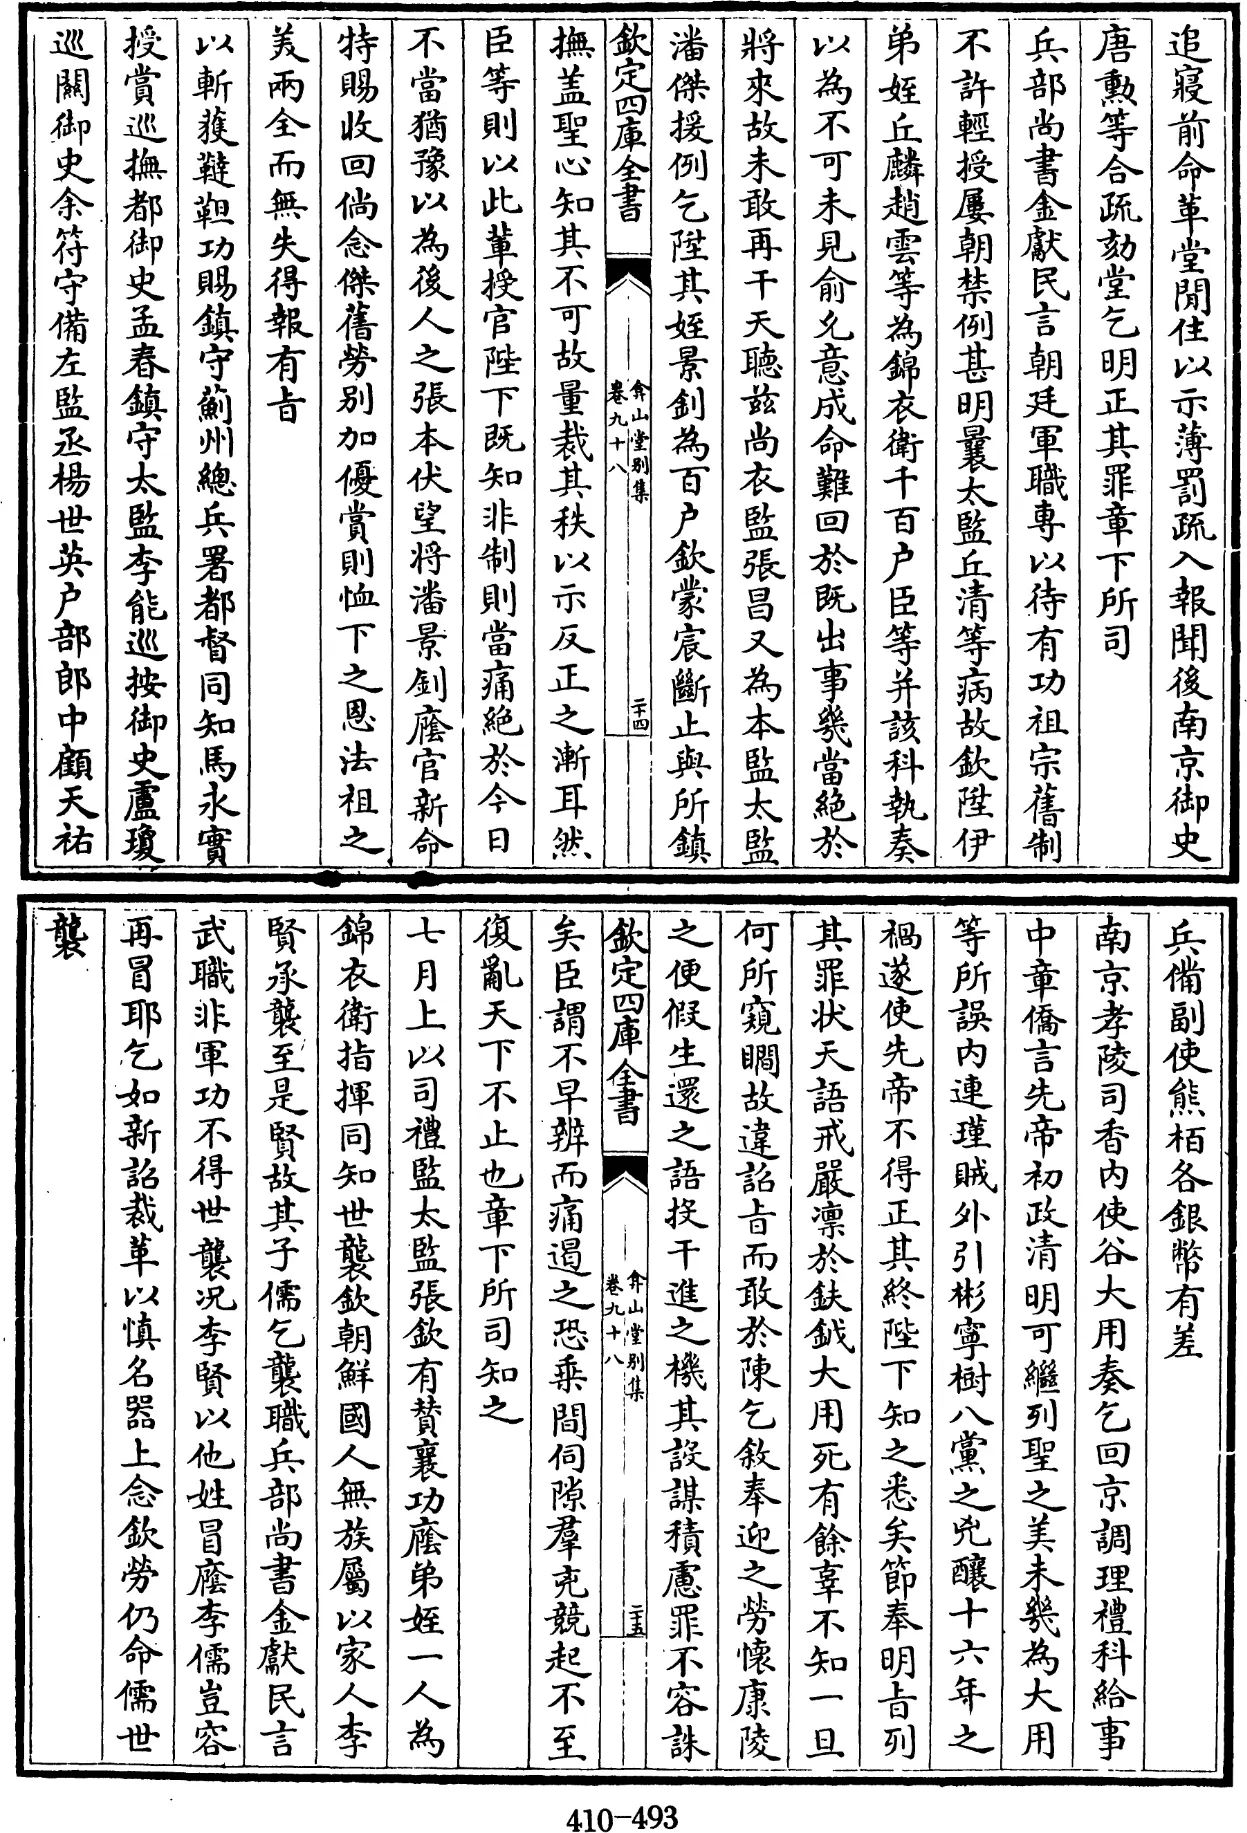 追寢前命革堂閒住以示薄罰疏入報聞後南京御史
唐勲等合疏劾堂乞明正其罪章下所司
兵部尚書金獻民言朝廷軍職専以待有功祖宗舊制
不許輕授屢朝禁例甚明曩太監丘清等病故欽陞伊
弟姪丘麟趙雲等為錦衣衛千百户臣等并該科執奏
以為不可未見俞允意成命難回於既出事幾當絕於
將來故未敢再干天聽兹尚衣監張昌又為本監太監
潘傑援例乞陞其姪景釗為百户欽蒙宸斷止與所鎮
欽定四庫全書
弇山堂别集
卷九十八
二十四
撫盖聖心知其不可故量裁其秩以示反正之漸耳然
臣等則以此輩授官陛下既知非制則當痛絕於今日
不當猶豫以為後人之張本伏望將潘景釗廕官新命
特賜收回倘念傑舊勞别加優賞則恤下之恩法祖之
美兩全而無失得報有㫖
以斬獲韃靼功賜鎮守薊州總兵署都督同知馬永實
授賞巡撫都御史孟春鎮守太監李能巡按御史盧瓊
巡關御史余符守備左監丞楊世英户部郎中顧天祐
兵備副使熊栢各銀幣有差
南京孝陵司香内使谷大用奏乞回京調理禮科給事
中章僑言先帝初政清明可繼列聖之美未幾為大用
等所誤内連瑾賊外引彬寧樹八黨之兇釀十六年之
禍遂使先帝不得正其終陛下知之悉矣節奉明㫖列
其罪状天語戒嚴凛於鈇鉞大用死有餘辜不知一旦
何所窺瞷故違詔㫖而敢於陳乞敘奉迎之勞懷康陵
之便假生還之語投干進之機其設謀積慮罪不容誅
欽定四庫全書
弇山堂别集
卷九十八
二十五
矣臣謂不早辨而痛遏之恐乗間伺隙羣兇競起不至
復亂天下不止也章下所司知之
七月上以司禮監太監張欽有賛襄功廕弟姪一人為
錦衣衛指揮同知世襲欽朝鮮國人無族屬以家人李
賢承襲至是賢故其子儒乞襲職兵部尚書金獻民言
武職非軍功不得世襲况李賢以他姓冒廕李儒豈容
再冒耶乞如新詔裁革以慎名器上念欽勞仍命儒世
襲
410-493